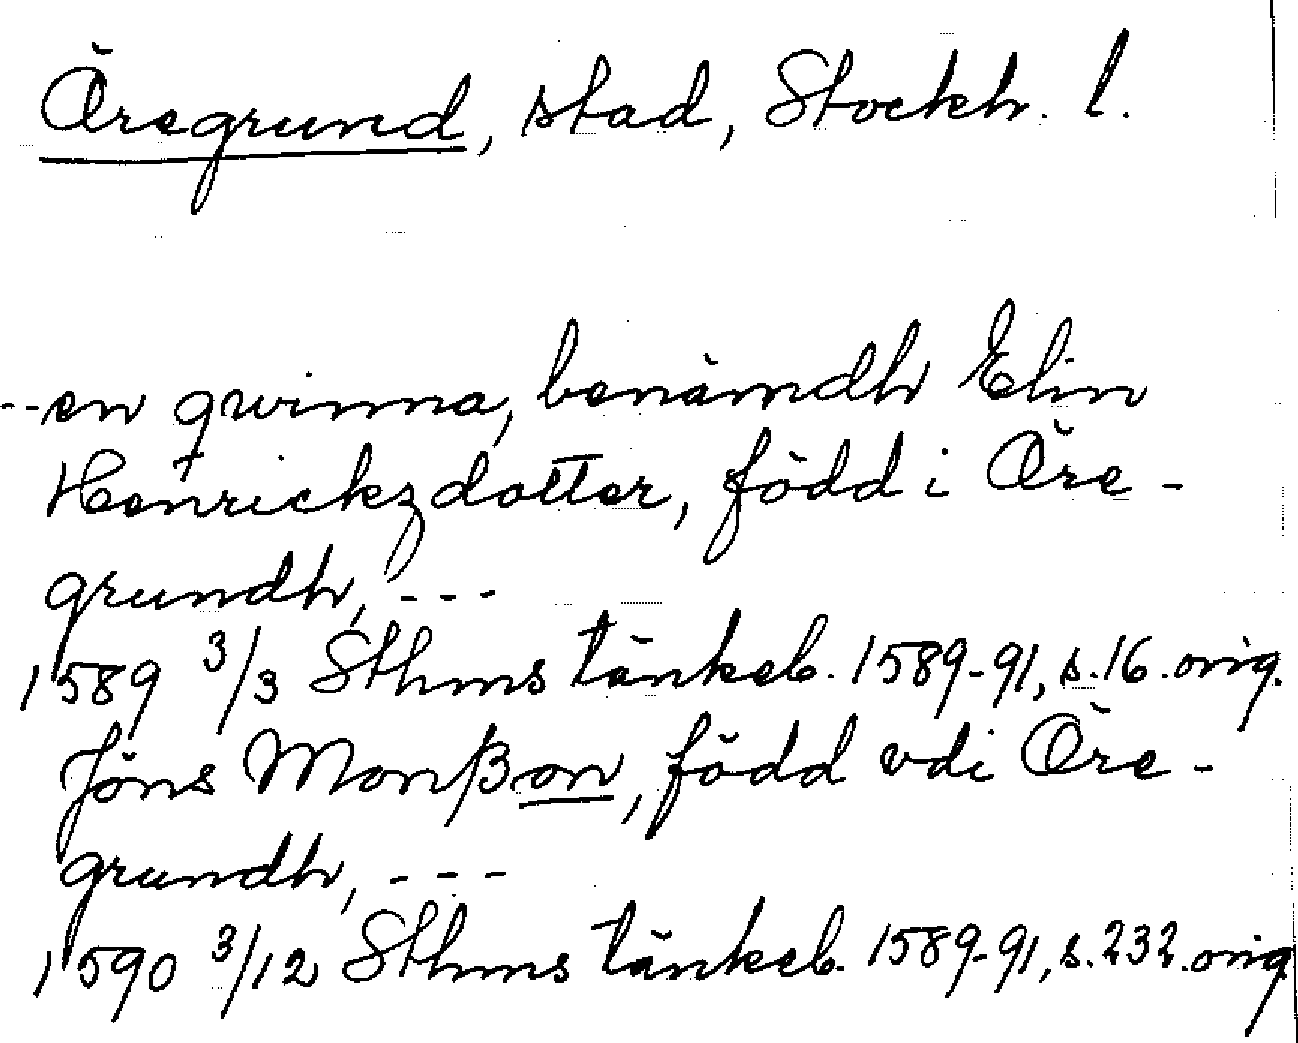 Öregrund, stad, Stockh. l.
--en qwinna, benämdh Elin
Henrickzdotter, född i Öre-
grundh, ---
1589 3/3 Sthms tänkeb. 1589-91, s. 16. orig.
Jöns Monßon, född vdi Öre-
grundh, ---
1590 3/12 Sthms tänkeb. 1589-91, s. 232. orig